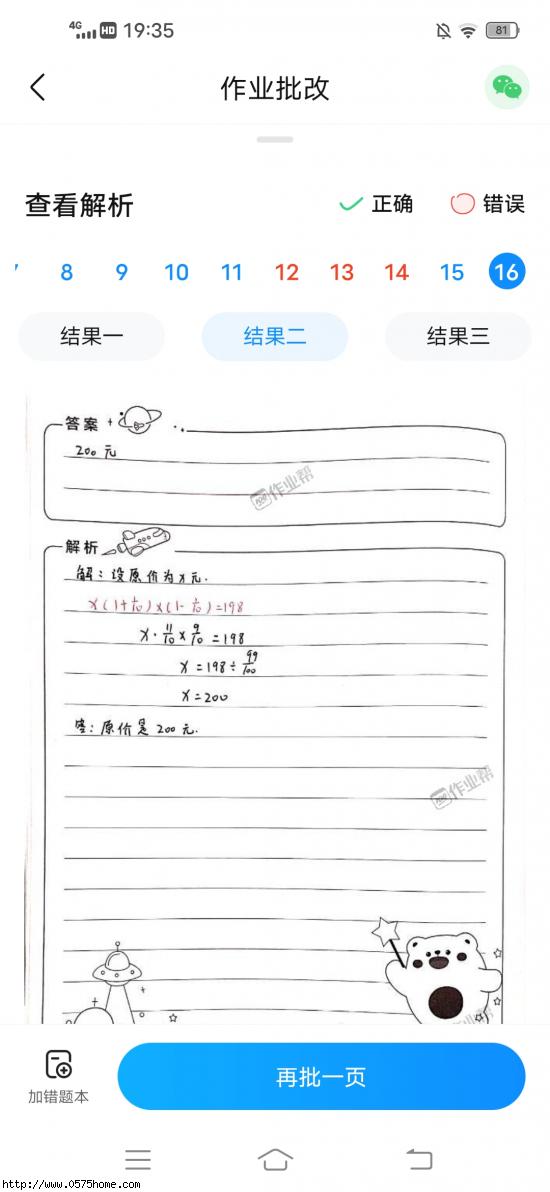 4G HD 19:35 81
作业批改
查看解析 正确 错误
8 9 10 11 12 13 14 15 16
结果一 结果二 结果三
答案
200 元
作业帮
解析
解：设原价为x元.
x(1+1/10)×(1-1/10)=198
x·11/10×9/10=198
x=198÷99/100
x=200
答：原价是 200 元.
作业帮
加错题本
再批一页
http://www.0575home.com